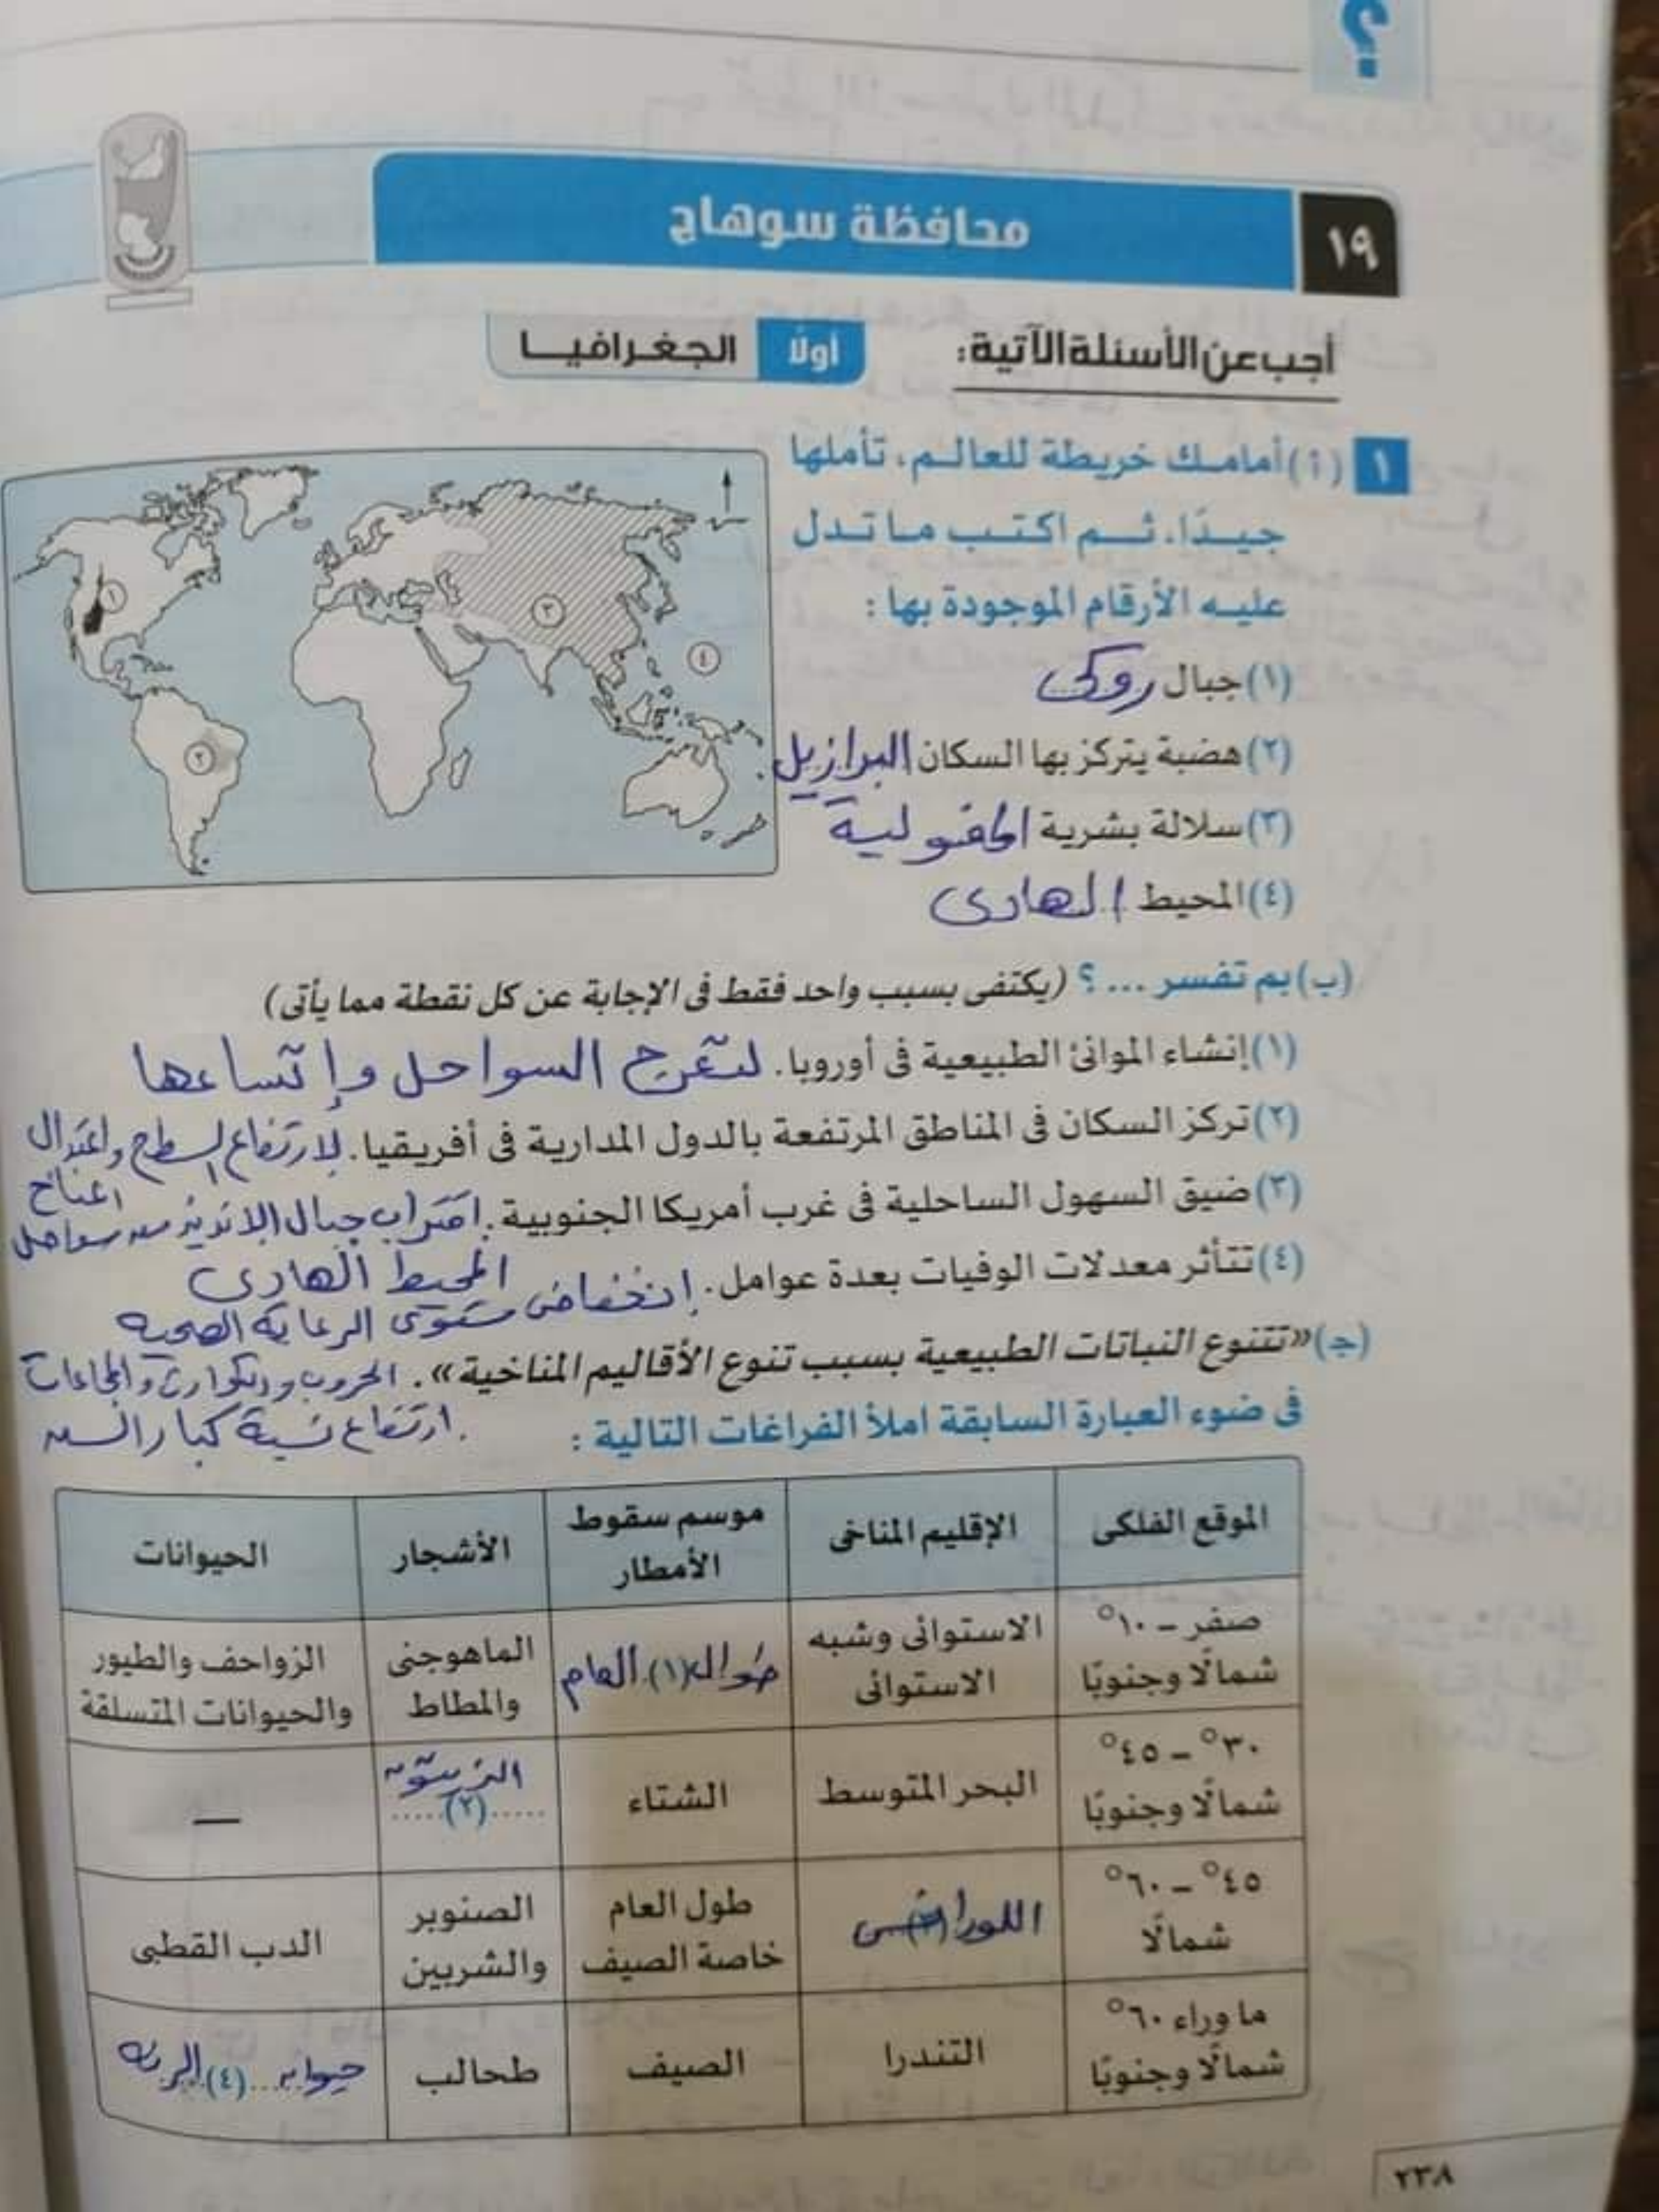 ؟
١٩ محافظة سوهاج
أجب عن الأسئلة الآتية:
أولًا الجغرافيا
١ (أ) أمامك خريطة للعالم، تأملها
جيدًا، ثم اكتب ما تدل
عليه الأرقام الموجودة بها :
(١) جبال روكى
(٢) هضبة يتركز بها السكان البرازيل
(٣) سلالة بشرية المغولية
(٤) المحيط الهادى
١
٢
٣
٤
(ب) بم تفسر ... ؟ (يكتفى بسبب واحد فقط فى الإجابة عن كل نقطة مما يأتى)
(١) إنشاء الموانئ الطبيعية فى أوروبا. لتعرج السواحل وإتساعها
(٢) تركز السكان فى المناطق المرتفعة بالدول المدارية فى أفريقيا. لارتفاع السطح واعتدال
المناخ
(٣) ضيق السهول الساحلية فى غرب أمريكا الجنوبية. اقتراب جبال الانديز من سواحل
المحيط الهادى
(٤) تتأثر معدلات الوفيات بعدة عوامل. إنخفاض مستوى الرعاية الصحية
(ج) «تتنوع النباتات الطبيعية بسبب تنوع الأقاليم المناخية». الحروب والكوارث والمجاعات
فى ضوء العبارة السابقة املأ الفراغات التالية : ارتفاع نسبة كبار السن
الموقع الفلكى الإقليم المناخى موسم سقوط الأمطار الأشجار الحيوانات
صفر – ١٠° شمالًا وجنوبًا الاستوائى وشبه الاستوائى طوال (١) العام الماهوجنى والمطاط الزواحف والطيور والحيوانات المتسلقة
٣٠° – ٤٥° شمالًا وجنوبًا البحر المتوسط الشتاء الزيتون .....(٢)..... —
٤٥° – ٦٠° شمالًا طول العام خاصة الصيف الصنوبر والشربين الدب القطبى
ما وراء ٦٠° شمالًا وجنوبًا التندرا الصيف طحالب حيوان ...(٤) الرنة
٢٣٨